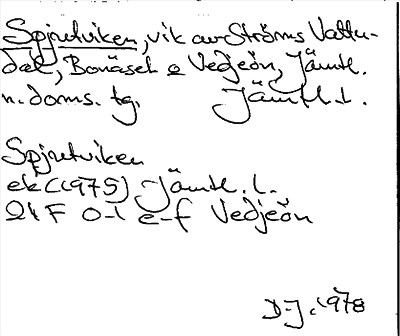 Spjutviken, vik av Ströms Vattu-
dal, Bonäset o Vedjeön, Jämtl.
n. doms. tg. Jämtl. l.
Spjutviken
ek (1975) Jämtl. l.
21 F 0-1 e-f Vedjeön
D-J. 1978